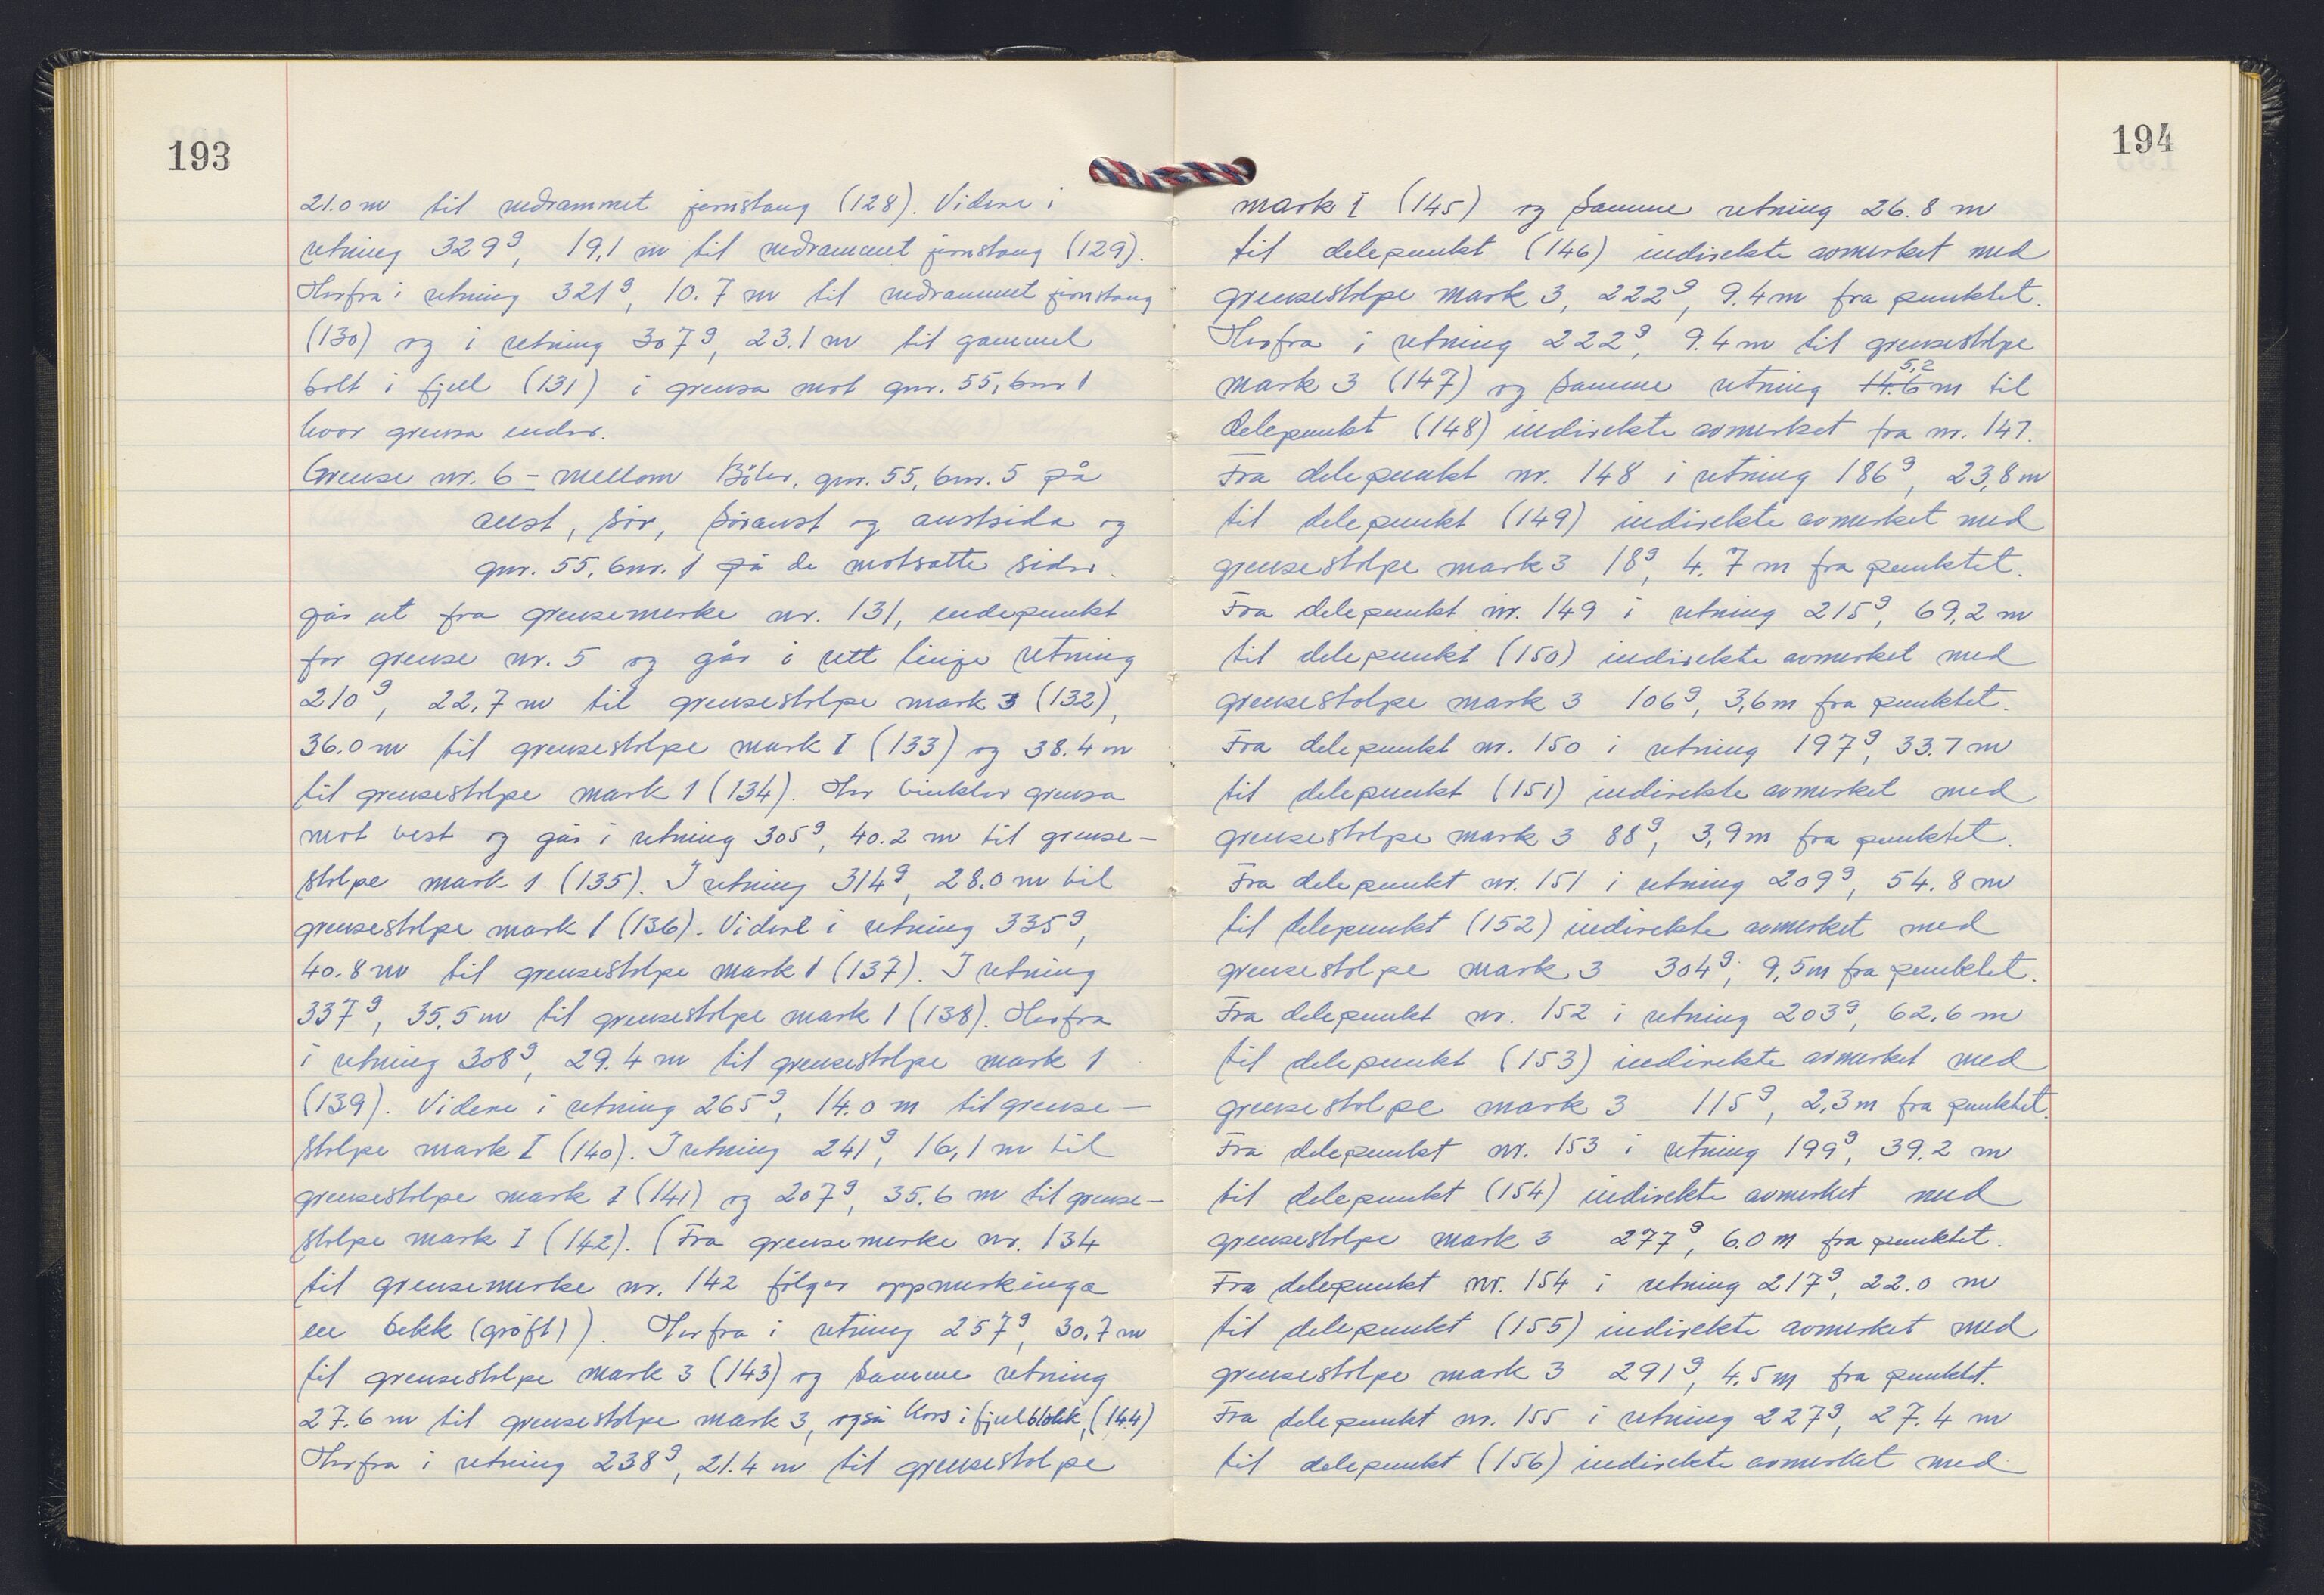 193
21.0 m til nedrammet jernstang (128). Videre i
retning 329g, 19,1 m til nedrammet jernstang (129).
Herfra i retning 321g, 10.7 m til nedrammet jernstang
(130) og i retning 307g, 23.1 m til gammel
bolt i fjell (131) i grensa mot gnr. 55, bnr 1
hvor grensa ender.
Grense nr. 6 - mellom Bøler, gnr. 55, bnr. 5 på
aust, sør, søraust og austsida og
gnr. 55, bnr. 1 på de motsatte sider.
går ut fra grensemerke nr. 131, endepunkt
for grense nr. 5 og går i rett linje retning
210g, 22,7 m til grensestolpe mark 3 (132),
36.0 m til grensestolpe mark I (133) og 38.4 m
til grensestolpe mark 1 (134). Her vinkler grensa
mot vest og går i retning 305g, 40.2 m til grense-
stolpe mark 1 (135). I retning 314g, 28.0 m til
grensestolpe mark 1 (136). Videre i retning 335g,
40.8 m til grensestolpe mark 1 (137). I retning
337g, 35,5 m til grensestolpe mark 1 (138). Herfra
i retning 308g, 29.4 m til grensestolpe mark 1
(139). Videre i retning 265g, 14.0 m til grense-
stolpe mark I (140). I retning 241g, 16,1 m til
grensestolpe mark I (141) og 207g, 35.6 m til grense-
stolpe mark I (142). (Fra grensemerke nr. 134
til grensemerke nr. 142 følger oppmerkinga
en bekk (grøft)). Herfra i retning 257g, 30.7 m
til grensestolpe mark 3 (143) og samme retning
27.6 m til grensestolpe mark 3, også kors i fjellblokk, (144)
Herfra i retning 238g, 21.4 m til grensestolpe
194
mark I (145) og samme retning 26.8 m
til delepunkt (146) indirekte avmerket med
grensestolpe mark 3, 222g, 9.4 m fra punktet.
Herfra i retning 222g, 9.4 m til grensestolpe
5,2
mark 3 (147) og samme retning 14.6 m til
delepunkt (148) indirekte avmerket fra nr. 147.
Fra delepunkt nr. 148 i retning 186g, 23,8 m
til delepunkt (149) indirekte avmerket med
grensestolpe mark 3 18g, 4.7 m fra punktet.
Fra delepunkt nr. 149 i retning 215g, 69,2 m
til delepunkt (150) indirekte avmerket med
grensestolpe mark 3 106g, 3,6 m fra punktet.
Fra delepunkt nr. 150 i retning 197g, 33.7 m
til delepunkt (151) indirekte avmerket med
grensestolpe mark 3 88g, 3,9 m fra punktet.
Fra delepunkt nr. 151 i retning 209g, 54.8 m
til delepunkt (152) indirekte avmerket med
grensestolpe mark 3 304g, 9,5 m fra punktet.
Fra delepunkt nr. 152 i retning 203g, 62.6 m
til delepunkt (153) indirekte avmerket med
grensestolpe mark 3 115g, 2,3 m fra punktet.
Fra delepunkt nr. 153 i retning 199g, 39.2 m
til delepunkt (154) indirekte avmerket med
grensestolpe mark 3 277g, 6.0 m fra punktet.
Fra delepunkt nr. 154 i retning 217g, 22.0 m
til delepunkt (155) indirekte avmerket med
grensestolpe mark 3 291g, 4.5 m fra punktet.
Fra delepunkt nr. 155 i retning 227g, 27.4 m
til delepunkt (156) indirekte avmerket med